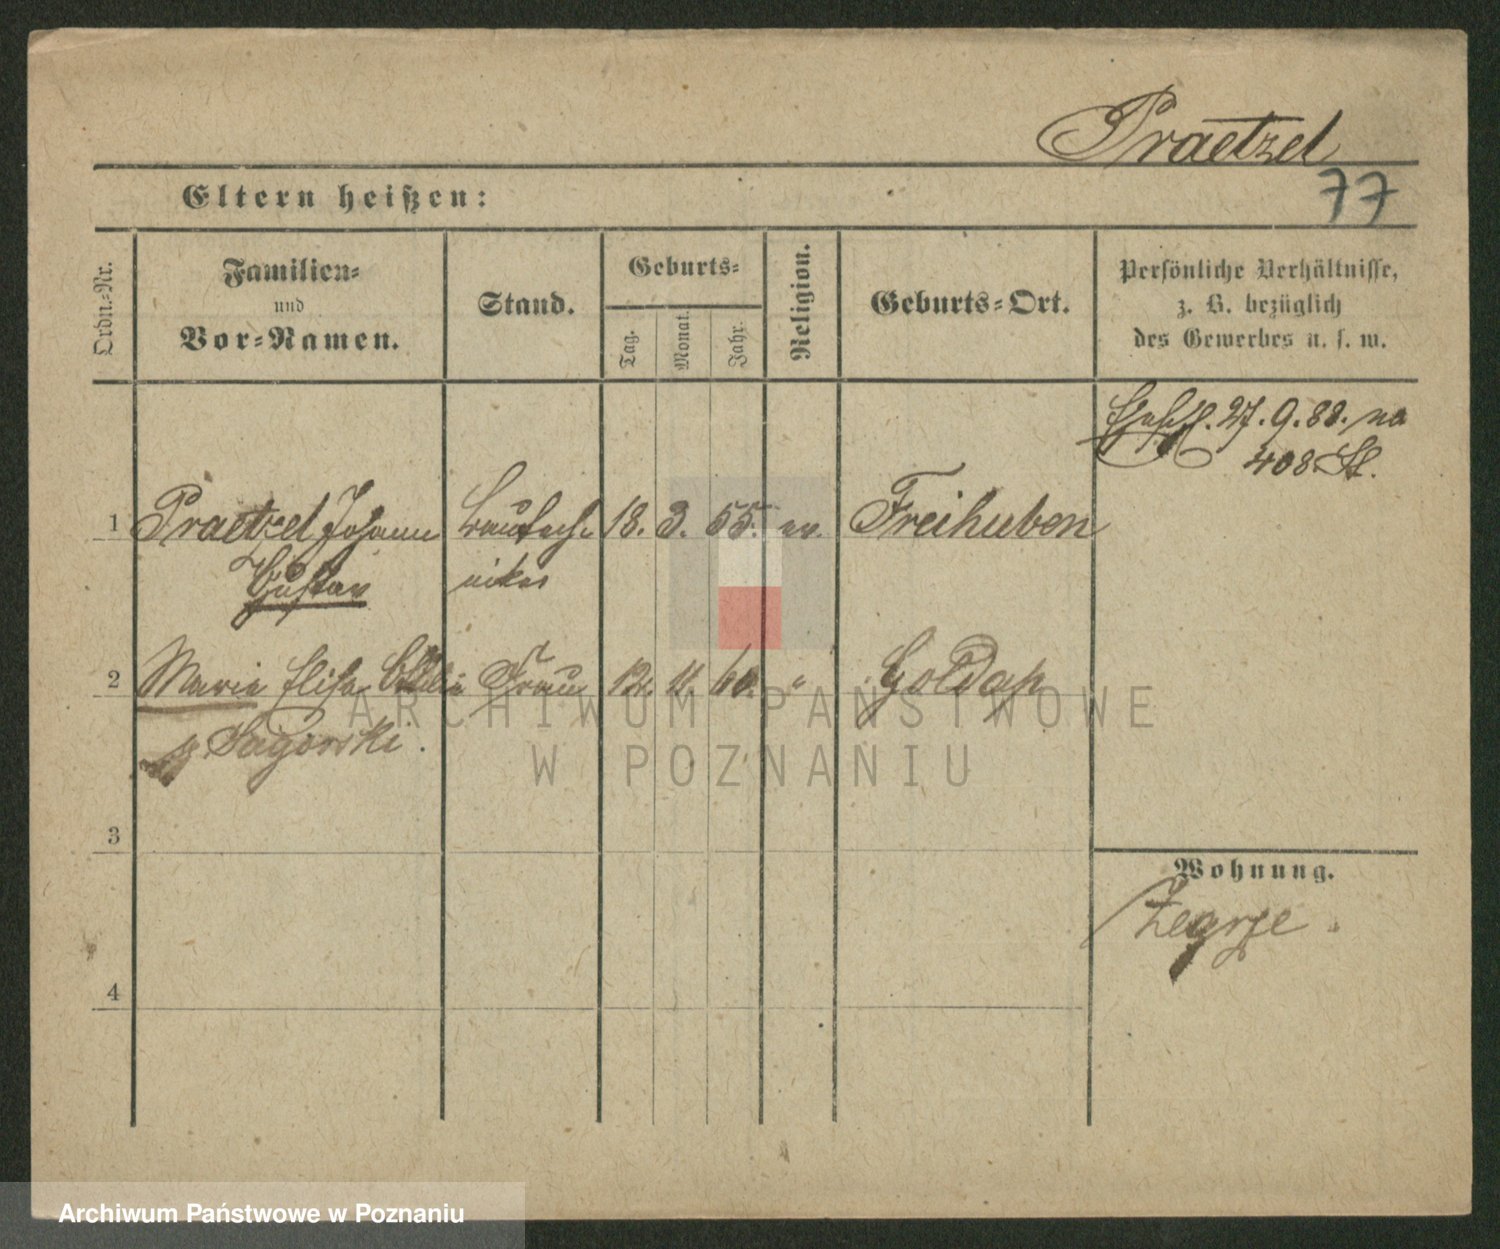 Praetzel
77
Eltern heißen:
Ordn.-Nr.
Familien-
und
Vor-Namen.
Stand.
Geburts-
Tag.
Monat.
Jahr.
Religion.
Geburts-Ort.
Persönliche Verhältnisse,
z. B. bezüglich
des Gewerbes u. s. w.
27.9.88.
408
1 Praetzel Johann Bautech- 18. 3. 55. ev. Freihuben
Gustav niker
2 Marie Elise Frau 11. 60. " Goldap
Sagorski.
3
Wohnung.
Zegrze.
4
ARCHIWUM PAŃSTWOWE
W POZNANIU
Archiwum Państwowe w Poznaniu